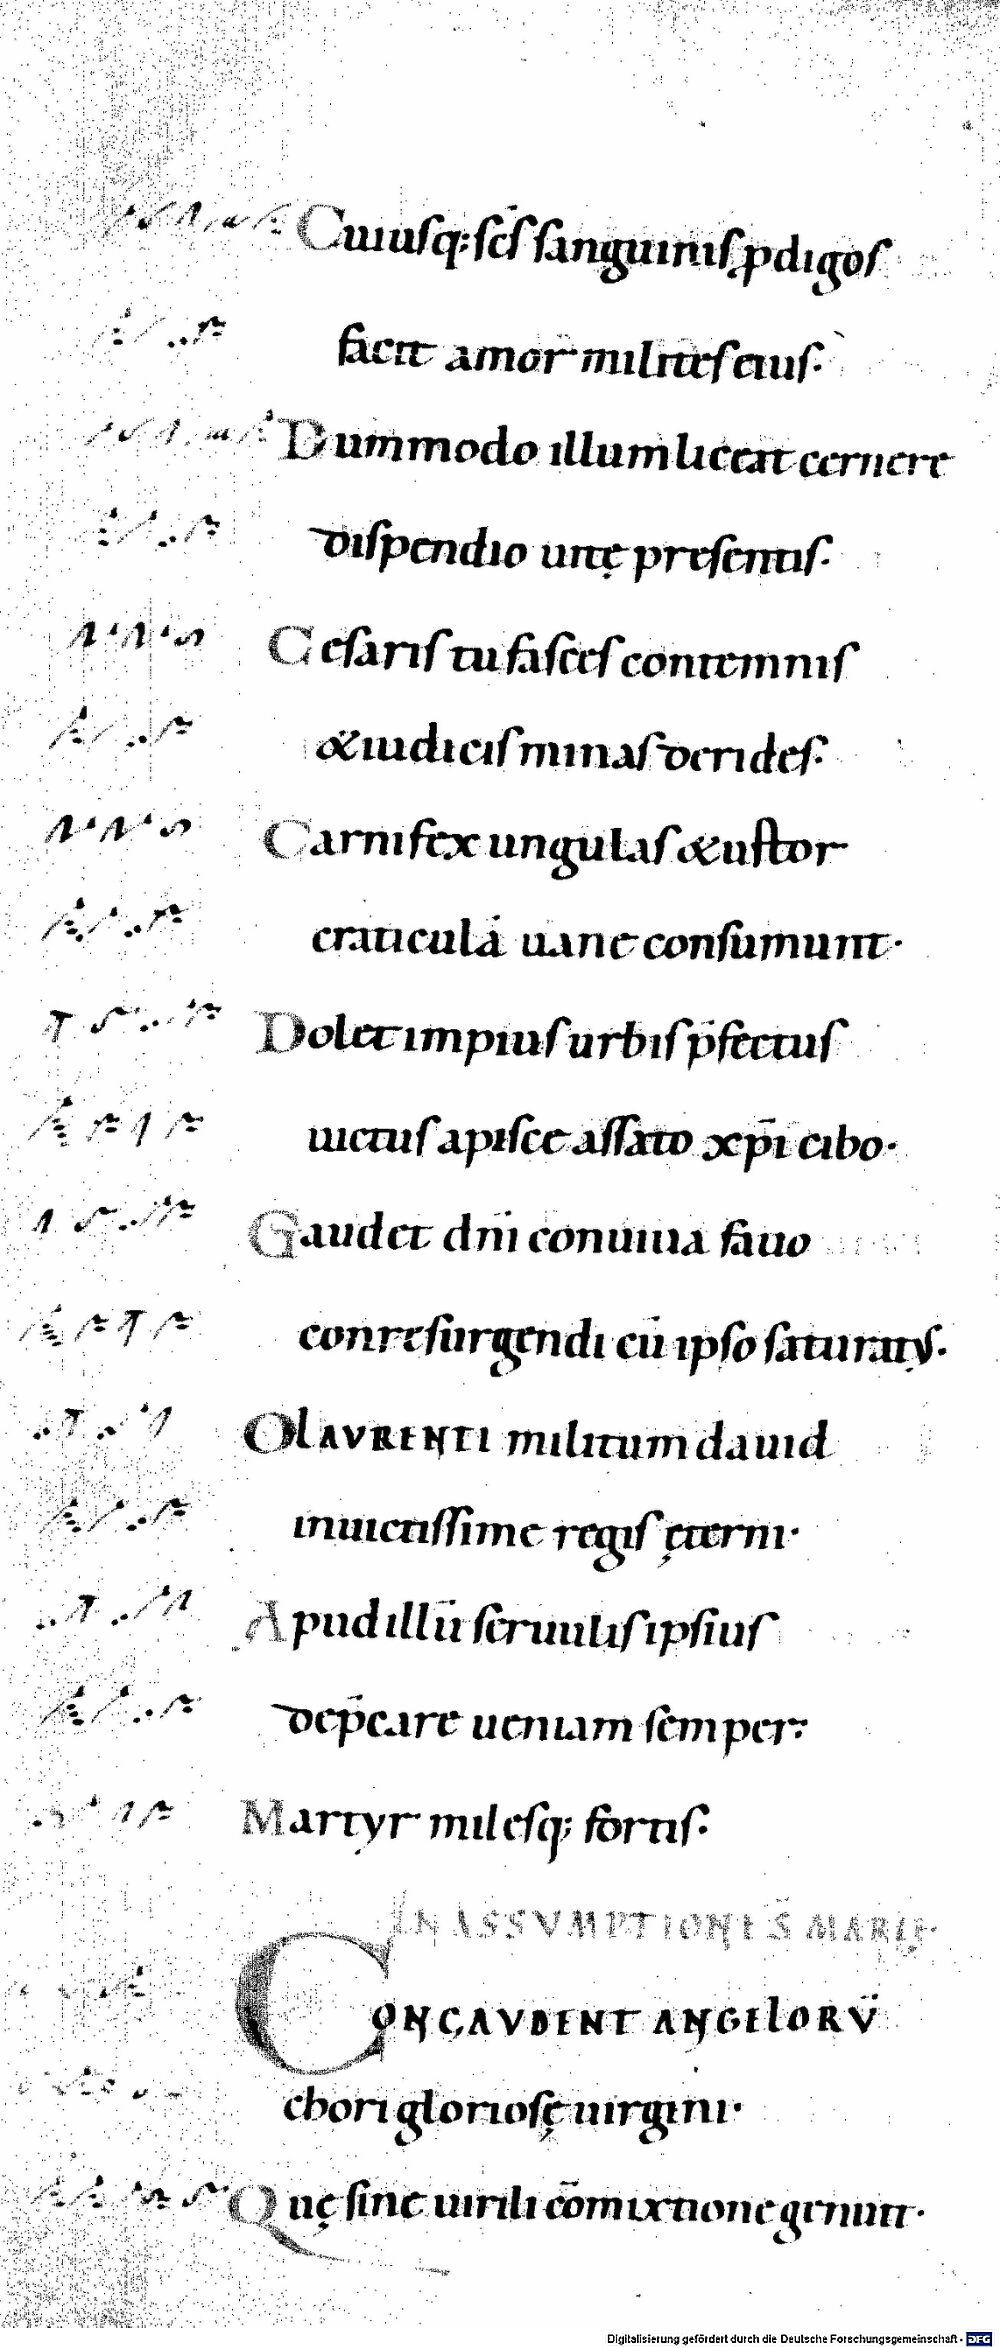 Cuiusq; scs̄ sanguinis p̱digos
facit amor milites eius·
Dummodo illum liceat cernere
dispendio uitę presentis·
Cesaris tu fasces contemnis
& iudicis minas derides·
Carnifex ungulas & ustor
craticulā uane consumunt·
Dolet impius urbis p̄fectus
uictus a pisce assato xp̄i cibo·
Gaudet dn̄i conuiua fauo
conresurgendi cū ipso saturatꝰ·
O LAVRENTI militum dauid
inuictissime regis ęterni·
Apud illū seruulis ipsius
dep̄care ueniam semper·
Martyr milesq; fortis·
IN ASSVMPTIONE S̄ MARIĘ·
CONGAVDENT ANGELORV̄
chori gloriosę uirgini·
Quę sine uirili cōmixtione genuit·
Digitalisierung gefördert durch die Deutsche Forschungsgemeinschaft - DFG